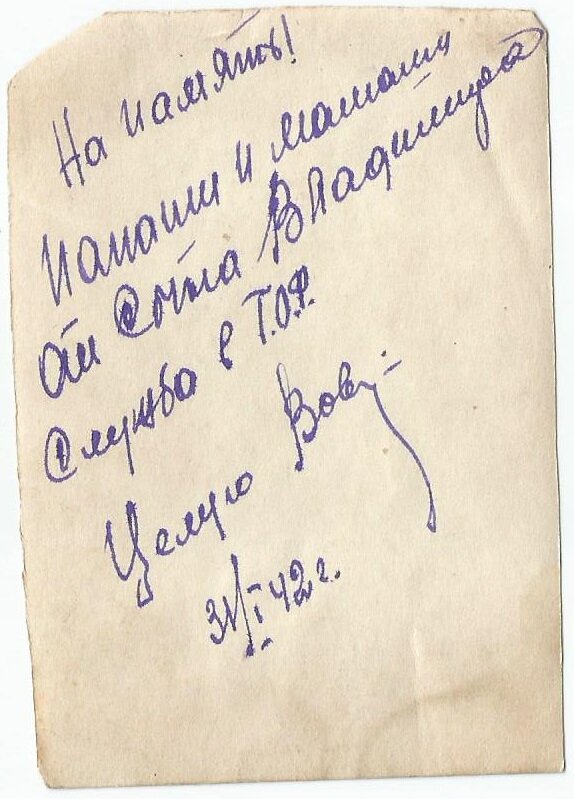 На память!
Папаши и мамаши
от Сына Владимира
Служба в Т.О.Ф.
Целую Вова
31/I 42 г.